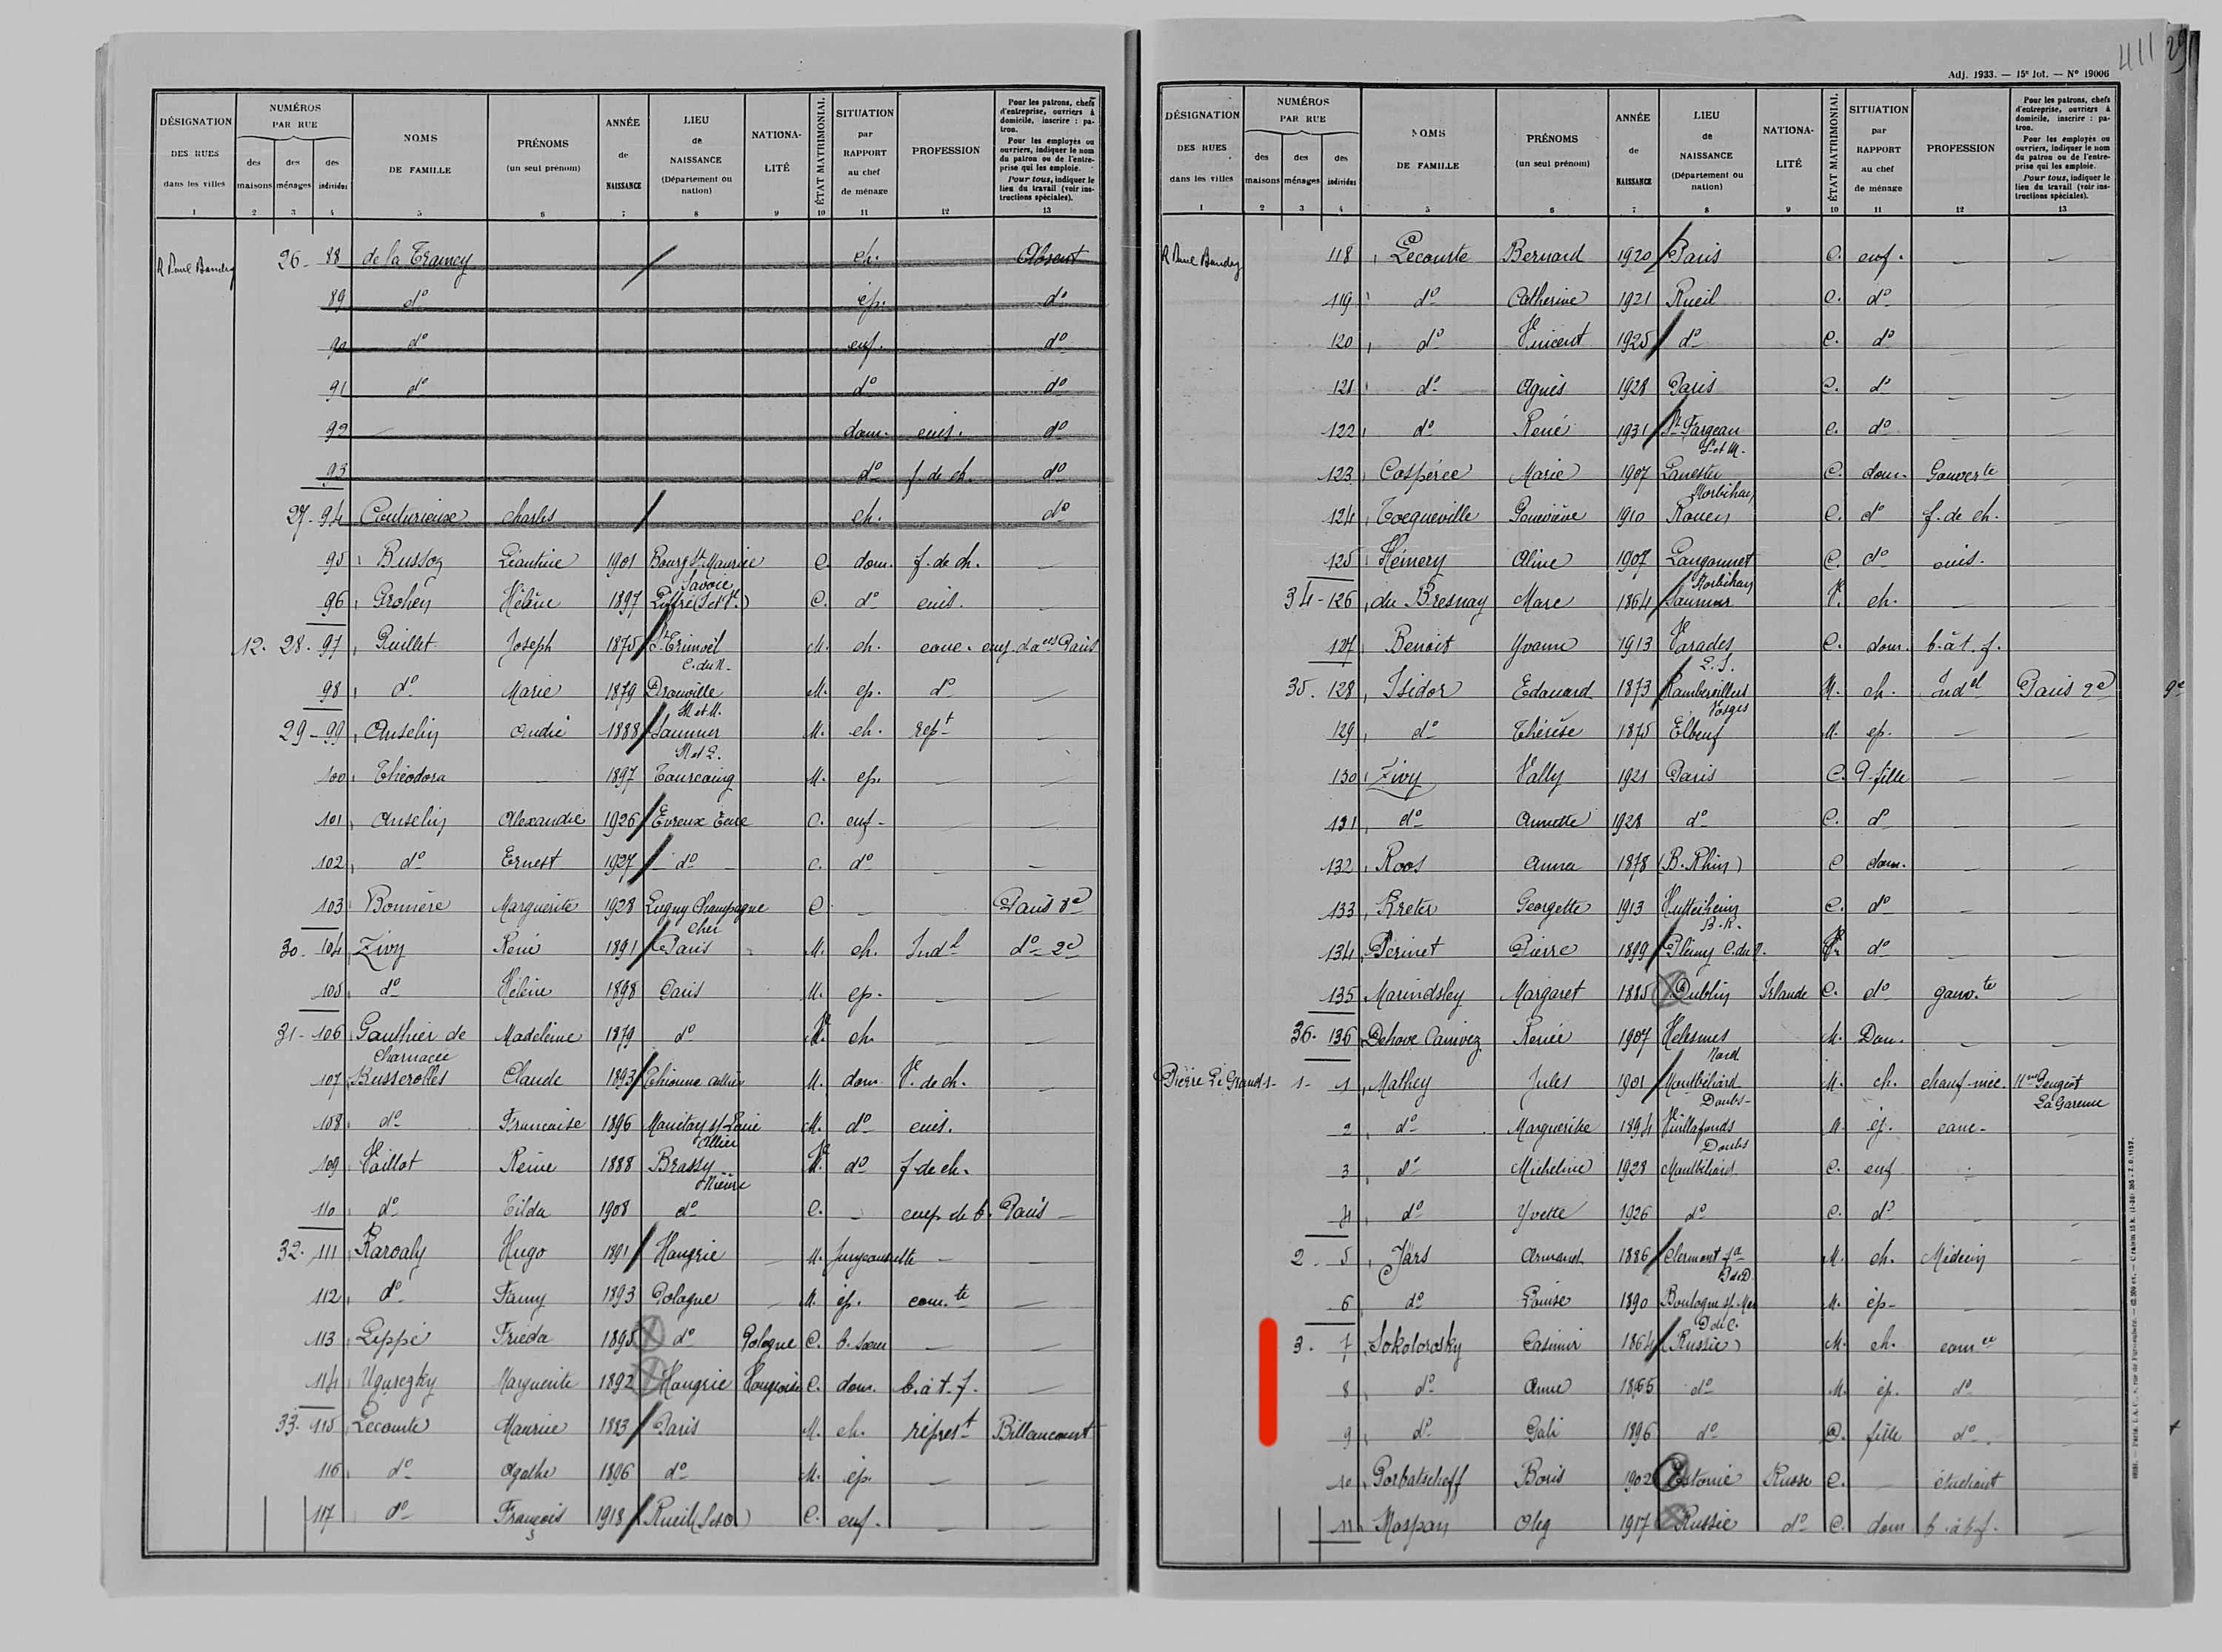 411 29
Adj. 1933. — 15e lot. — No 19006
DÉSIGNATION DES RUES dans les villes 1
NUMÉROS PAR RUE
des maisons 2
des ménages 3
des individus 4
NOMS DE FAMILLE 5
PRÉNOMS (un seul prénom) 6
ANNÉE de NAISSANCE 7
LIEU de NAISSANCE (Département ou nation) 8
NATIONALITÉ 9
ÉTAT MATRIMONIAL 10
SITUATION par RAPPORT au chef de ménage 11
PROFESSION 12
Pour les patrons, chefs d'entreprise, ouvriers à domicile, inscrire : patron.
Pour les employés ou ouvriers, indiquer le nom du patron ou de l'entreprise qui les emploie.
Pour tous, indiquer le lieu du travail (voir instructions spéciales). 13
R Paul Baudry 26 - 88 de la Tramey ch. Absent
89 do ép. do
90 do enf. do
91 do do do
92 dom. cuis. do
93 do f. de ch. do
27 - 94 Couturieux Charles ch. do
95 Bussoz Léontine 1901 Bourg St Maurice Savoie C. dom. f. de ch. —
96 Hélène 1897 Liffré (I et V.) C. do cuis. —
12. 28. 97 Guillet Joseph 1875 C. du N. M. ch. conc. Paris
98 do Marie 1879 Drouville M et M. M. ep. do —
29 - 99 Anselin André 1888 Saumur M et L. M. ch. rept —
100 Théodora — 1897 Tourcoing M. ep. — —
101 Anselin Alexandre 1926 Evreux Eure C. enf. — —
102 do Ernest 1927 do C. do — —
103 Bonnière Marguerite 1928 Lugny Champagne Cher C. — — Paris 8e
30 - 104 Zivy René 1891 Paris M. ch. Indl do 2e
105 do Hélène 1898 Paris M. ep. — —
31 - 106 Gauthier de Charnacée Madeleine 1879 do Ve ch. — —
107 Busserolles Claude 1893 Thionne Allier M. dom. V. de ch.
108 do Francoise 1896 Allier M. do cuis.
109 Vaillot Reine 1888 Brassy Nièvre Ve do f. de ch.
110 do Tilda 1908 do C. — emp. de b. Paris —
32. 111 Hugo 1891 Hongrie — M. —
112 do Fanny 1893 Pologne — M. ep. com.te —
113 Lippe Frieda 1895 do Pologne C. b. sœur — —
114 Marguerite 1892 Hongrie Hongroise C. dom. b. à t. f. —
33. 115 Lecomte Maurice 1883 Paris M. ch. représt Billancourt
116 do Agathe 1896 do M. ép. — —
117 do François 1918 Rueil (S et O) C. enf. — —
DÉSIGNATION DES RUES dans les villes 1
NUMÉROS PAR RUE
des maisons 2
des ménages 3
des individus 4
NOMS DE FAMILLE 5
PRÉNOMS (un seul prénom) 6
ANNÉE de NAISSANCE 7
LIEU de NAISSANCE (Département ou nation) 8
NATIONALITÉ 9
ÉTAT MATRIMONIAL 10
SITUATION par RAPPORT au chef de ménage 11
PROFESSION 12
Pour les patrons, chefs d'entreprise, ouvriers à domicile, inscrire : patron.
Pour les employés ou ouvriers, indiquer le nom du patron ou de l'entreprise qui les emploie.
Pour tous, indiquer le lieu du travail (voir instructions spéciales). 13
R Paul Baudry 118 Lecomte Bernard 1920 Paris C. enf. — —
119 do Catherine 1921 Rueil C. do — —
120 do Vincent 1925 do C. do — —
121 do Agnès 1928 Paris C. do — —
122 do René 1931 St Fargeau S. et M. C. do — —
123 Cospérec Marie 1907 Lanester Morbihan C. dom. Gouverte —
124 Tocqueville Geneviève 1910 Rouen C. do f. de ch. —
125 Hémery Aline 1907 Langonnet Morbihan C. do cuis. —
34 - 126 du Bresnay Marc 1864 Saumur V. ch. — —
127 Benoit Yvonne 1913 Varades L. I. C. dom. b. à t. f.
35. 128 Isidor Edouard 1873 Rambervillers Vosges M. ch. Indel Paris 2e 9e
129 do Thérèse 1875 Elbeuf M. ep. — —
130 Zivy Vally 1921 Paris C. P. fille — —
131 do Annette 1928 do C. do — —
132 Roos Anna 1878 (B. Rhin) C dom. — —
133 Kreter Georgette 1913 Huttenheim B. R. C. do — —
134 Perinet Pierre 1899 Plémy C. du N. do — —
135 Marindsley Margaret 1885 Dublin Irlande C. do gouv.te —
36. 136 Dehove Canivez Renée 1907 Helesmes Nord M. Dom. — —
Pierre Le Grand 1 - 1 - 1 Mathey Jules 1901 Montbéliard Doubs M. ch. chauf. méc. Peugeot La Garenne
2 do Marguerite 1894 Vuillafonds Doubs M ép. conc. —
3 do Micheline 1928 Montbéliard C. enf —
4 do Yvette 1926 do C. do — —
2 - 5 Jars Armand 1886 Clermont Fd P. de D. M. ch. Médecin
6 do Louise 1890 Boulogne s/ Mer P. de C. M. ép. — —
3 - 7 Sokolorsky Casimir 1864 (Russie) M. ch. comce
8 do Anne 1865 do M. ép. do —
9 do Gali 1896 do fille do —
10 Gorbatscheff Boris 1902 Estonie Russe C. — étudiant
11 Maspan Oleg 1917 Russie do C. dom b. à t. f. —